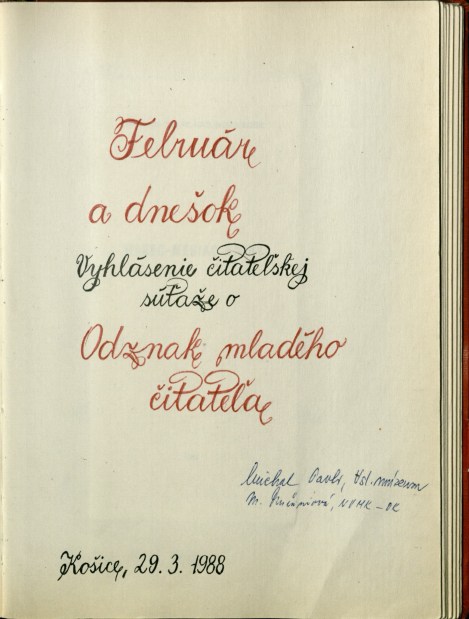 Február
a dnešok
Vyhlásenie čitateľskej
súťaže o
Odznak mladého
čitateľa
Michal Pavk, Vsl. múzeum
M. NVMK - OK
Košice, 29. 3. 1988